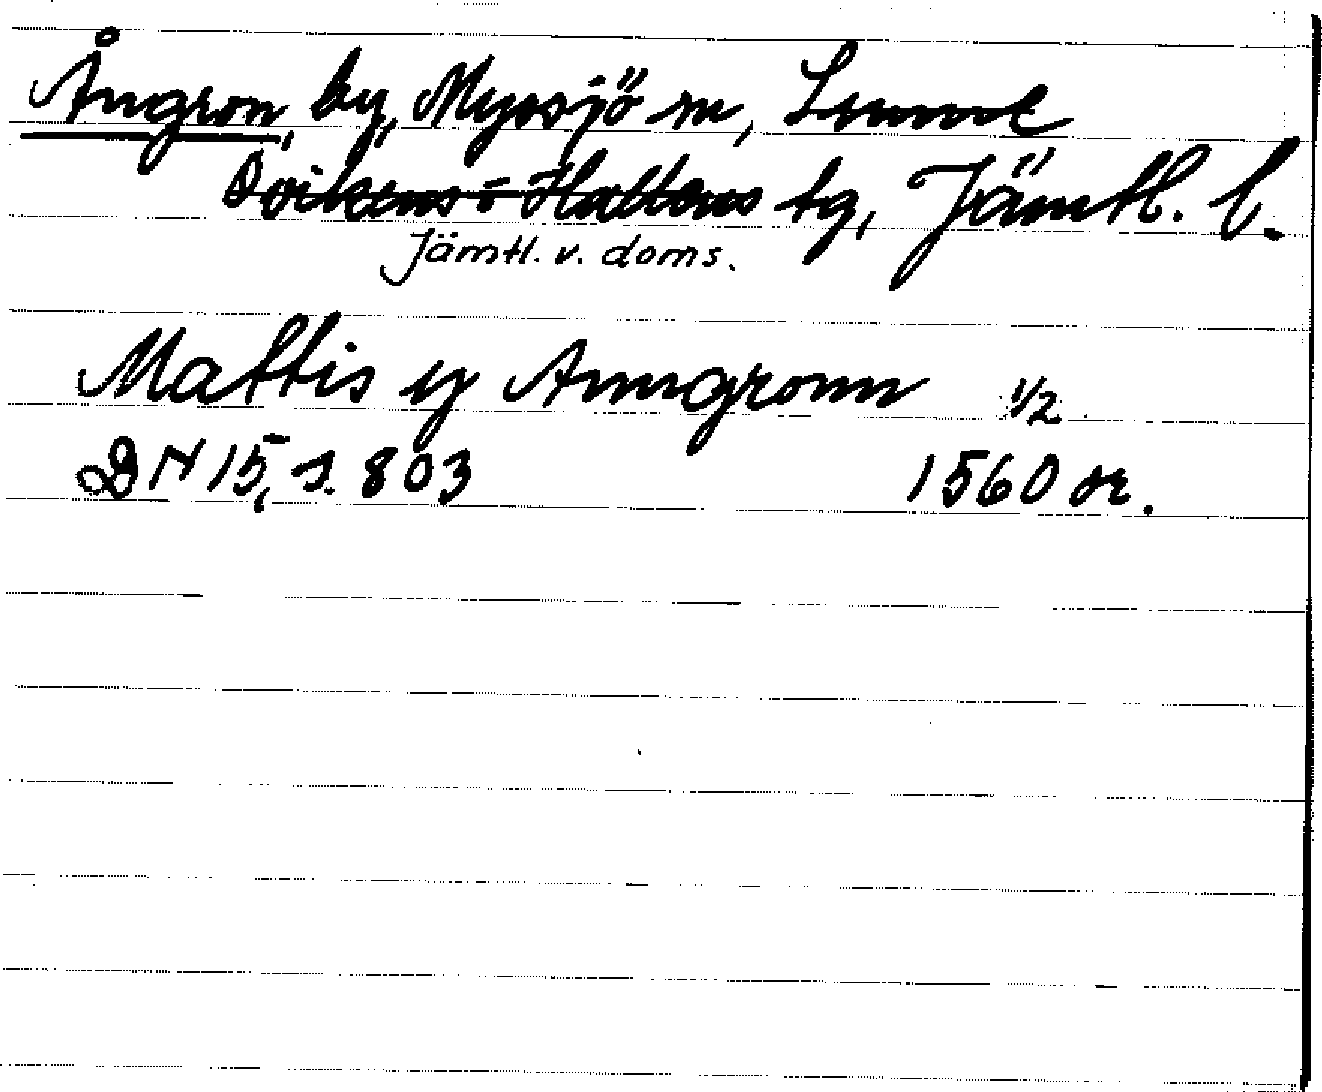 Ångron, by, Myssjö sn, Sunne
Ovikens o Hallens tg, Jämtl. l.
Jämtl. v. doms.
Mattis y Anngronn 1/2
DN 15, s. 803 1560 or.